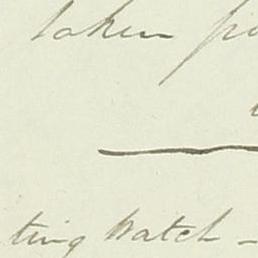 taken
ting Watch -